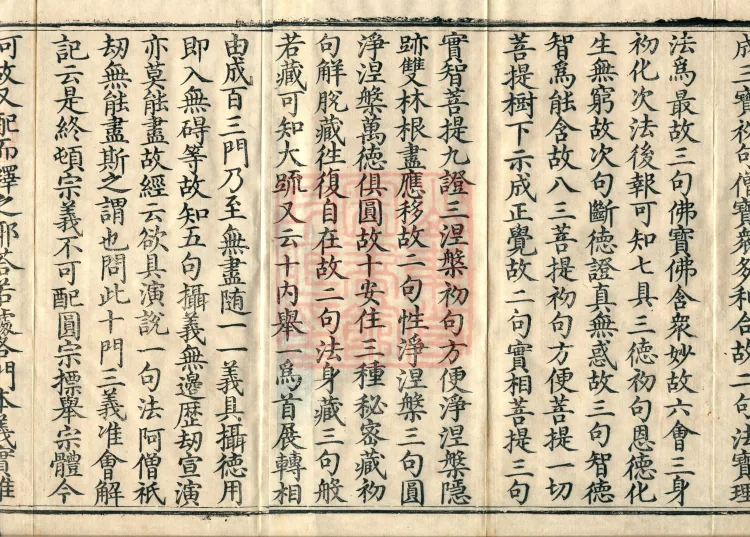 成三寶初句僧寶衆多和合故二句法寶理
法爲最故三句佛寶佛含衆妙故六會三身
初化次法後報可知七具三德初句恩德化
生無窮故次句斷德證真無惑故三句智德
智爲能含故八三菩提初句方便菩提一切
菩提樹下示成正覺故二句實相菩提三句
實智菩提九證三涅槃初句方便淨涅槃隱
跡雙林根盡應移故二句性淨涅槃三句圓
淨涅槃萬德俱圓故十安住三種秘密藏初
句解脫藏往復自在故二句法身藏三句般
若藏可知大䟽又云十內舉一爲首展轉相
由成百三門乃至無盡随一一義具攝德用
即入無碍等故知五句攝義無邊歷刼宣演
亦莫能盡故經云欲具演說一句法阿僧祇
刼無能盡斯之謂也問此十門三義准會解
記云是終頓宗義不可配圓宗標舉宗體今
何故又配而釋之耶答若據各門本義實唯